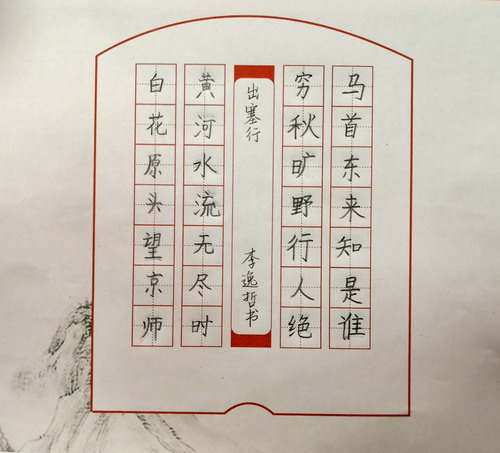 白花原头望京师
黄河水流无尽时
出塞行
李逸哲书
穷秋旷野行人绝
马首东来知是谁